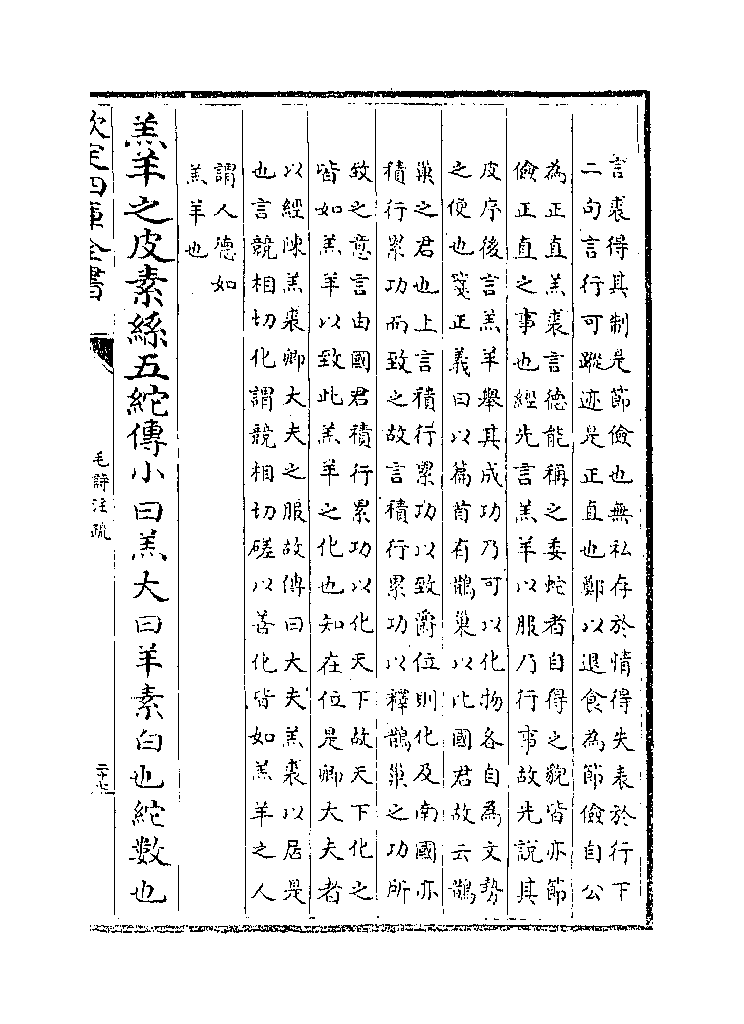 言裘得其制是節儉也無私存於情得失表於行下
二句言行可蹤迹是正直也鄭以退食為節儉自公
為正直羔裘言德能稱之委蛇者自得之貌皆亦節
儉正直之事也經先言羔羊以服乃行事故先說其
皮序後言羔羊舉其成功乃可以化物各自為文勢
之便也箋正義曰以篇首有鵲巢以比國君故云鵲
巢之君也上言積行累功以致爵位則化及南國亦
積行累功而致之故言積行累功以釋鵲巢之功所
致之意言由國君積行累功以化天下故天下化之
皆如羔羊以致此羔羊之化也知在位是卿大夫者
以經陳羔裘卿大夫之服故傳曰大夫羔裘以居是
也言競相切化謂競相切磋以善化皆如羔羊之人
謂人德如
羔羊也
羔羊之皮素絲五紽傳小曰羔大曰羊素白也紽數也
欽定四庫全書
毛詩注疏